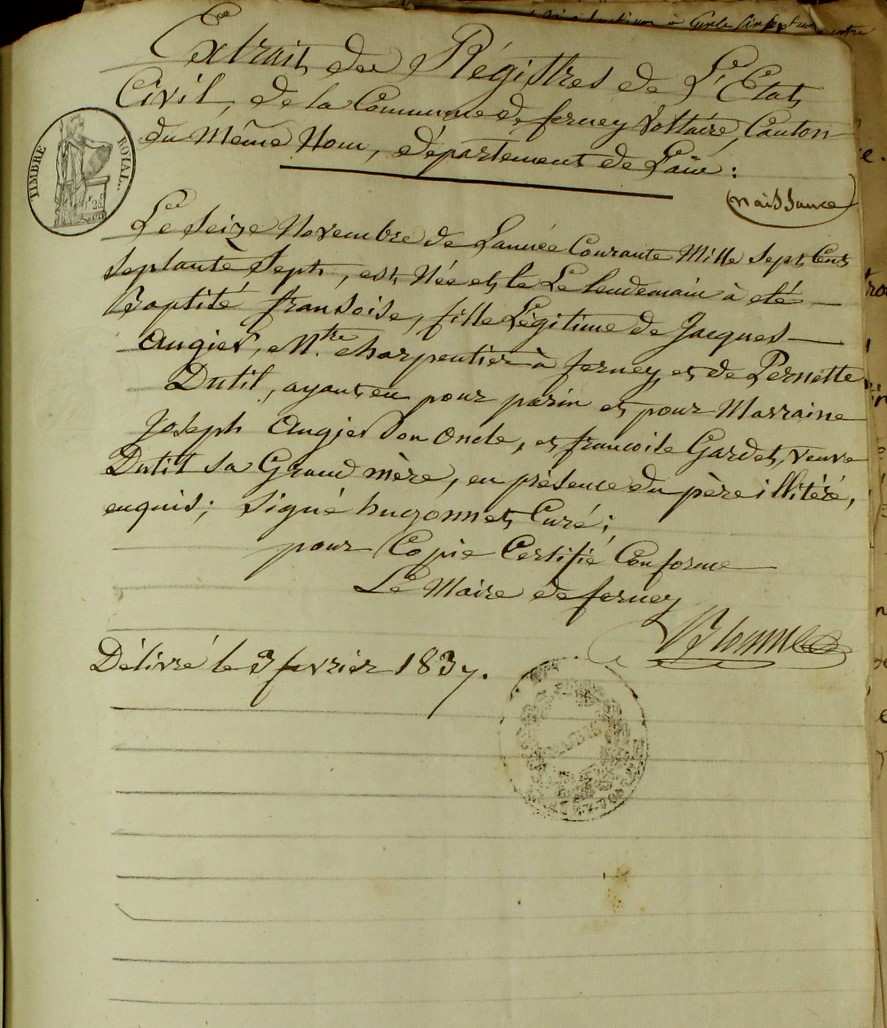 Extrait des Régistres de L'Etat
Civil, de la Commune de ferney Voltaire, Canton
du Même Nom, département de L'ain :
TIMBRE ROYAL
naissance
Le Seize Novembre de L'année Courante Mille Sept Cent
Septante Sept, est Née et le Lendemain à eté
Baptisé fransoise, fille Légitime de Jacques
Augier, M.tre charpentier à ferney et de Pernette
Dutil, ayant eu pour parin et pour Marraine
Joseph Augier Son Oncle, et francoise Gardet, veuve
Dutil sa Grand mère, en présence du père illitéré,
enquis; Signé hugonnet Curé;
pour Copie Certifié Conforme
Le Maire de ferney
Délivré le 3 fevrier 1837.